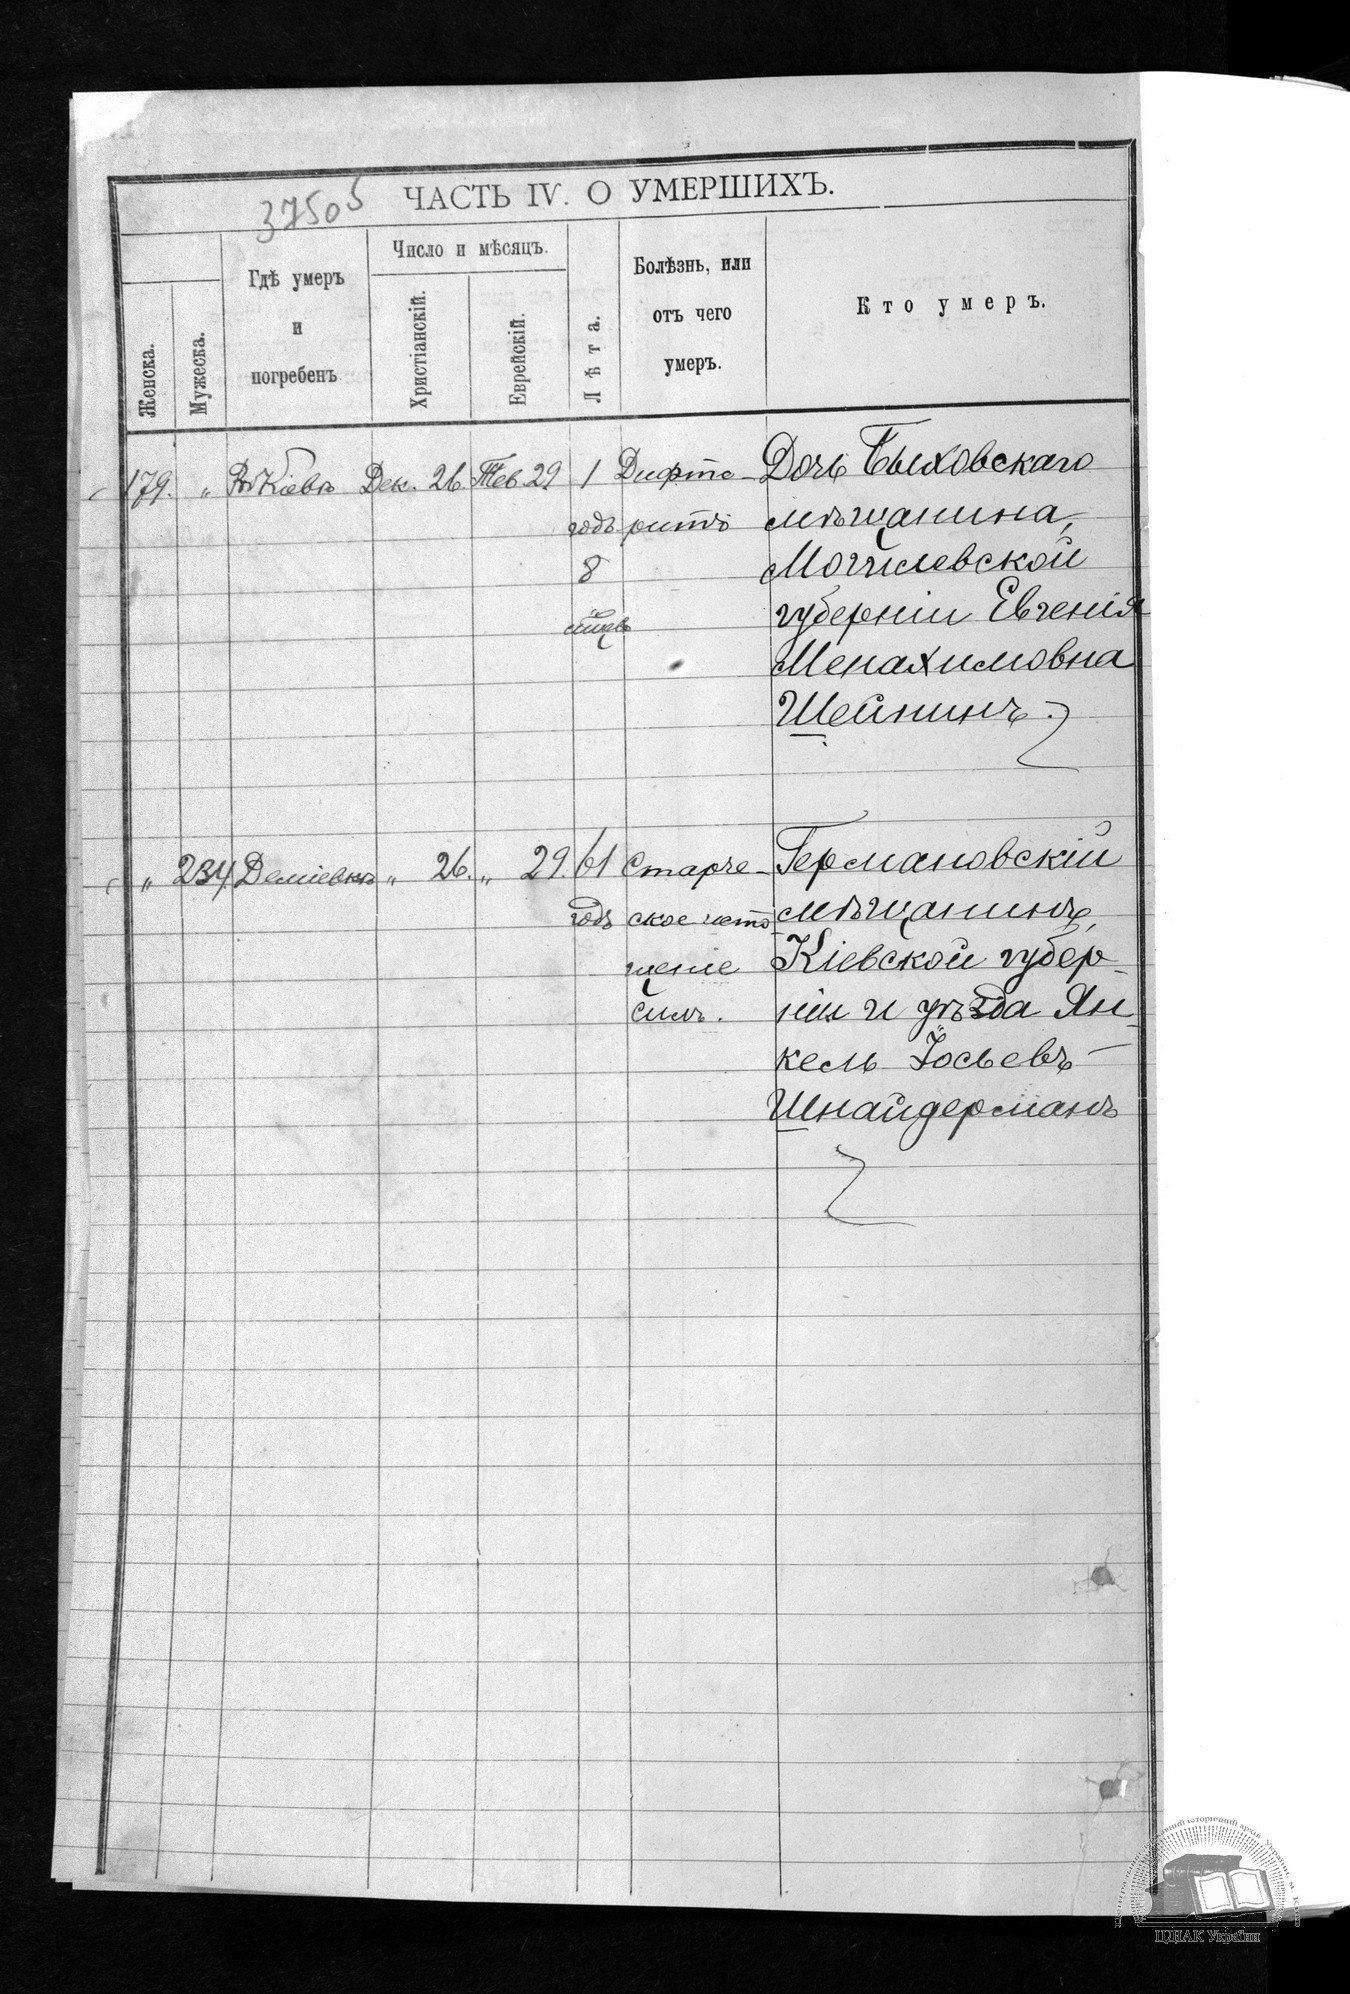 37505
ЧАСТЬ IV. О УМЕРШИХЪ.
Женска.
Мужеска.
Гдѣ умеръ
и
погребенъ
Число и мѣсяцъ.
Христіанскій.
Еврейскій.
Лѣта.
Болѣзнь, или
отъ чего
умеръ.
Кто умеръ.
179. „ Въ Кіевѣ Дек. 26. Тев. 29 1 Дифте- Дочь Быховскаго
годъ ритъ мѣщанина,
8 Могилевской
губерніи Евгенія
Менахимовна
Шейнинъ.
„ 234. Деміевкѣ „ 26. „ 29. 61 Старче- Германовскій
годъ ское исто- мѣщанинъ,
щеніе Кіевской губер-
силъ. ніи и уѣзда Ян-
кель Іосьевъ
Шнайдерманъ
ЦДІАК України